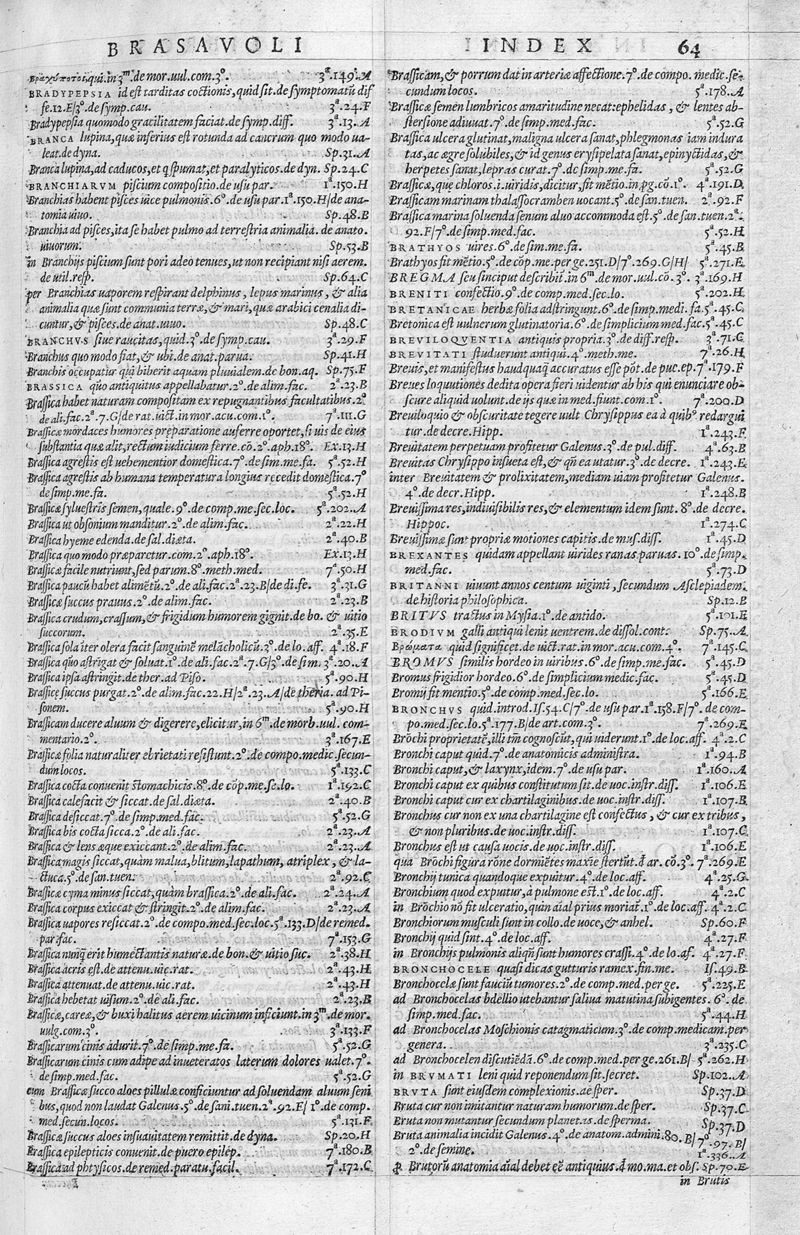 BRASAVOLI INDEX 64
Βραχύποτοι, qui. in 3ᵐ. de mor. uul. com. 3°. 3ᵃ.149.A
BRADYPEPSIA id est tarditas coctionis, quid sit. de symptomatū dif
fe. 12. E/3°. de symp. cau. 3ᵃ.24.F
Bradypepsia quomodo gracilitatem faciat. de symp. diff. 3ᵃ.13.A
BRANCA lupina, quæ inferius est rotunda ad cancrum quo modo ua-
leat. de dyna. Sp.31.A
Branca lupina, ad caducos, et q spumat, et paralyticos. de dyn. Sp.24.C
BRANCHIARVM piscium compositio. de usu par. 1ᵃ.150.H
Branchias habent pisces uice pulmonis. 6°. de usu par. 1ᵃ.150.H/de ana-
tomia uiuo. Sp.48.B
Branchia ad pisces, ita se habet pulmo ad terrestria animalia. de anato.
uiuorum. Sp.53.B
in Branchijs piscium sunt pori adeo tenues, ut non recipiant nisi aerem.
de util. resp. Sp.64.C
per Branchias uaporem respirant delphinus, lepus marinus, & alia
animalia quæ sunt communia terræ, & mari, quæ arabici cenalia di-
cuntur, & pisces. de anat. uiuo. Sp.48.C
BRANCHVS siue raucitas, quid. 3°. de symp. cau. 3ᵃ.29.F
Branchus quo modo fiat, & ubi. de anat. parua. Sp.41.H
Branchis occupatur qui biberit aquam pluuialem. de bon. aq. Sp.75.F
BRASSICA quo antiquitus appellabatur. 2°. de alim. fac. 2ᵃ.23.B
Brassica habet naturam compositam ex repugnantibus facultatibus. 2°
de ali. fac. 2ᵃ.7.G/de rat. uict. in mor. acu. com. 1°. 7ᵃ.111.G
Brassicæ mordaces humores præparatione auferre oportet, si uis de eius
substantia quæ alit, rectum iudicium ferre. cō. 2°. aph. 18°. Ex.13.H
Brassica agrestis est uehementior domestica. 7°. de sim. me. fa. 5ᵃ.52.H
Brassica agrestis ab humana temperatura longius recedit domestica. 7°
de simp. me. fa. 5ᵃ.52.H
Brassicæ syluestris semen, quale. 9°. de comp. me. sec. loc. 5ᵃ.202.A
Brassica ut obsonium manditur. 2°. de alim. fac. 2ᵃ.22.H
Brassica hyeme edenda. de sal. diæta. 2ᵃ.40.B
Brassica quo modo præparetur. com. 2°. aph. 18°. Ex.13.H
Brassicæ facile nutriunt, sed parum. 8°. meth. med. 7ᵃ.50.H
Brassica paucū habet alimētū. 2°. de ali. fac. 2ᵃ.23.B/de di. fe. 3ᵃ.31.G
Brassicæ succus prauus. 2°. de alim. fac. 2ᵃ.23.B
Brassica crudum, crassum, & frigidum humorem gignit. de bo. & uitio
succorum. 2ᵃ.35.E
Brassica sola iter olera facit sanguinē melācholicū. 3°. de lo. aff. 4ᵃ.18.F
Brassica quo astrigat & soluat. 1°. de ali. fac. 2ᵃ.7.G/3°. de sim. 3ᵃ.20.A
Brassica ipsa astringit. de ther. ad Piso. 5ᵃ.90.H
Brassicę succus purgat. 2°. de alim. fac. 22.H/2ᵃ.23.A/de theria. ad Pi-
sonem. 5ᵃ.90.H
Brassicam ducere aluum & digerere, elicitur, in 6ᵐ. de morb. uul. com-
mentario. 2°. 3ᵃ.167.E
Brassicæ folia naturaliter ebrietati resistunt. 2°. de compo. medic. secun-
dum locos. 5ᵃ.133.C
Brassica cocta conuenit stomachicis. 8°. de cōp. me. se. lo. 1ᵃ.192.C
Brassica calefacit & siccat. de sal. diæta. 2ᵃ.40.B
Brassica desiccat. 7°. de simp. med. fac. 5ᵃ.52.G
Brassica bis cocta sicca. 2°. de ali. fac. 2ᵃ.23.A
Brassica & lens æque exiccant. 2°. de alim. fac. 2ᵃ.23.A
Brassica magis siccat, quàm malua, blitum, lapathum, atriplex, & la-
ctuca. 5°. de san. tuen. 2ᵃ.92.C
Brassicæ cyma minus siccat, quàm brassica. 2°. de ali. fac. 2ᵃ.24.A
Brassica corpus exiccat & stringit. 2°. de alim. fac. 2ᵃ.23.A
Brassica uapores resiccat. 2°. de compo. med. sec. loc. 5ᵃ.133.D/de remed.
par. fac. 7ᵃ.153.G
Brassica nunq̄ erit humectantis naturæ. de bon. & uitio suc. 2ᵃ.38.H
Brassica acris est. de attenu. uic. rat. 2ᵃ.43.H
Brassica attenuat. de attenu. uic. rat. 2ᵃ.43.H
Brassica hebetat uisum. 2°. de ali. fac. 2ᵃ.23.B
Brassicæ, careæ, & buxi halitus aerem uicinum inficiunt. in 3ᵐ. de mor.
uulg. com. 3°. 3ᵃ.133.F
Brassicarum cinis adurit. 7°. de simp. me. fa. 5ᵃ.52.G
Brassicarum cinis cum adipe ad inueteratos laterum dolores ualet. 7°.
de simp. med. fac. 5ᵃ.52.G
cum Brassicæ succo aloes pillulæ conficiuntur ad soluendam aluum seni
bus, quod non laudat Galenus. 5°. de sani. tuen. 2ᵃ.92.E/1°. de comp.
med. secun. locos. 5ᵃ.131.F
Brassicæ succus aloes insuauitatem remittit. de dyna. Sp.20.H
Brassica epilepticis conuenit. de puero epilep. 7ᵃ.180.B
Brassica ad phtysicos. de remed. paratu. facil. 7ᵃ.172.C
Brassicam, & porrum dat in arteriæ affectione. 7°. de compo. medic. se-
cundum locos. 5ᵃ.178.A
Brassicæ semen lumbricos amaritudine necat: ephelidas, & lentes ab-
stersione adiuuat. 7°. de simp. med. fac. 5ᵃ.52.G
Brassica ulcera glutinat, maligna ulcera sanat, phlegmonas iam indura
tas, ac ægre solubiles, & id genus erysipelata sanat, epinyctidas, &
herpetes sanat, lepras curat. 7°. de simp. me. fa. 5ᵃ.52.G
Brassicæ, quę chloros. i. uiridis, dicitur, fit mētio. in. pg. cō. 1°. 4ᵃ.191.D.
Brassicam marinam thalassocramben uocant. 5°. de san. tuen. 2ᵃ.92.F
Brassica marina soluenda senum aluo accommoda est. 5°. de san. tuen. 2ᵃ.
92.F/7°. de simp. med. fac. 5ᵃ.52.H
BRATHYOS uires. 6°. de sim. me. fa. 5ᵃ.45.B
Brathyos fit mētio. 5°. de cōp. me. per ge. 251.D/7°. 269.G/H/ 5ᵃ.271.E
BREGMA seu sinciput describit. in 6ᵐ. de mor. uul. cō. 3°. 3ᵃ.169.H
BRENITI confectio. 9°. de comp. med. sec. lo. 5ᵃ.202.H
BRETANICAE herbæ folia adstringunt. 6°. de simp. medi. fa. 5ᵃ.45.C
Bretonica est uulnerum glutinatoria. 6°. de simplicium med. fac. 5ᵃ.45.C
BREVILOQVENTIA antiquis propria. 3°. de diff. resp. 3ᵃ.71.C
BREVITATI studuerunt antiqui. 4°. meth. me. 7ᵃ.26.H
Breuis, et manifestus haudquaq̄ accuratus esse pōt. de puc. ep. 7ᵃ.179.F
Breues loquutiones dedita opera fieri uidentur ab his qui enunciare ob-
scure aliquid uolunt. de ijs quæ in med. fiunt. com. 1°. 7ᵃ.200.D
Breuiloquio & obscuritate tegere uult Chrysippus ea à quib° redargui
tur. de decre. Hipp. 1ᵃ.243.F
Breuitatem perpetuam profitetur Galenus. 3°. de pul. diff. 4ᵃ.63.B
Breuitas Chrysippo insueta est, & qñ ea utatur. 3°. de decre. 1ᵃ.243.E
inter Breuitatem & prolixitatem, mediam uiam profitetur Galenus.
4°. de decr. Hipp. 1ᵃ.248.B
Breuissima res, indiuisibilis res, & elementum idem sunt. 8°. de decre.
Hippoc. 1ᵃ.274.C
Breuissimæ sunt propriæ motiones capitis. de mus. diss. 1ᵃ.45.D
BREXANTES quidam appellant uirides ranas paruas. 10°. de simp.
med. fac. 5ᵃ.73.D
BRITANNI uiuunt annos centum uiginti, secundum Asclepiadem.
de historia philosophica. Sp.12.B
BRITVS tractus in Mysia. 1°. de antido. 5ᵃ.101.E
BRODIVM galli antiqui lenit uentrem. de dissol. cont. Sp.75.A
Βρώματα quid significet. de uict. rat. in mor. acu. com. 4°. 7ᵃ.145.C
BROMVS similis hordeo in uiribus. 6°. de simp. me. fac. 5ᵃ.45.D
Bromus frigidior hordeo. 6°. de simplicium medic. fac. 5ᵃ.45.D
Bromij fit mentio. 5°. de comp. med. sec. lo. 5ᵃ.166.E
BRONCHVS quid. introd. Is.54.C/7°. de usu par. 1ᵃ.158.F/7°. de com-
po. med. sec. lo. 5ᵃ.177.B/de art. com. 3°. 7ᵃ.269.E
Brōchi proprietatē, illi tm̄ cognoscūt, qui uiderunt. 1°. de loc. aff. 4ᵃ.2.C
Bronchi caput quid. 7°. de anatomicis administra. 1ᵃ.94.B
Bronchi caput, & laxynx, idem. 7°. de usu par. 1ᵃ.160.A
Bronchi caput ex quibus constitutum sit. de uoc. instr. diss. 1ᵃ.106.E
Bronchi caput cur ex chartilaginibus. de uoc. instr. diss. 1ᵃ.107.B
Bronchus cur non ex una chartilagine est confectus, & cur ex tribus,
& non pluribus. de uoc. instr. diss. 1ᵃ.107.C
Bronchus est ut causa uocis. de uoc. instr. diss. 1ᵃ.106.E
qua Brōchi figura rōne dormiētes maxie stertūt. d̄ ar. cō. 3°. 7ᵃ.269.E
Bronchij tunica quandoque expuitur. 4°. de loc. aff. 4ᵃ.25.G
Bronchium quod expuitur, à pulmone est. 1°. de loc. aff. 4ᵃ.2.C
in Brōchio nō fit ulceratio, quin aīal prius moriat. 1°. de loc. aff. 4ᵃ.2.C
Bronchiorum musculi sunt in collo. de uoce, & anhel. Sp.60.F
Bronchij quid sint. 4°. de loc. aff. 4ᵃ.27.F
in Bronchijs pulmonis aliqñ sunt humores crassi. 4°. de lo. af. 4ᵃ.27.F
BRONCHOCELE quasi dicas gutturis ramex. fin. me. Is.49.B
Bronchocelæ sunt fauciū tumores. 2°. de comp. med. per ge. 5ᵃ.225.E
ad Bronchocelas bdellio utebantur saliua matutina subigentes. 6°. de
simp. med. fac. 5ᵃ.44.H
ad Bronchocelas Moschionis catagmaticum. 3°. de comp. medicam. per
genera. 5ᵃ.235.C
ad Bronchocelen discutiēdā. 6°. de comp. med. per ge. 261.B/ 5ᵃ.262.H
in BRVMATI leni quid reponendum sit. secret. Sp.102.A
BRVTA sunt eiusdem complexionis. ae sper. Sp.37.D
Bruta cur non imitantur naturam humorum. de sper. Sp.37.C
Bruta non mutantur secundum planetas. de sperma. Sp.37.D
Bruta animalia incidit Galenus. 4°. de anatom. admini. 80.B/7°.97.B/
2°. de semine. 1ᵃ.336.A
p Brutorū anatomia aīal debet eē antiquius. d̄ mo. ma. et obs. Sp.70.E
in Brutis